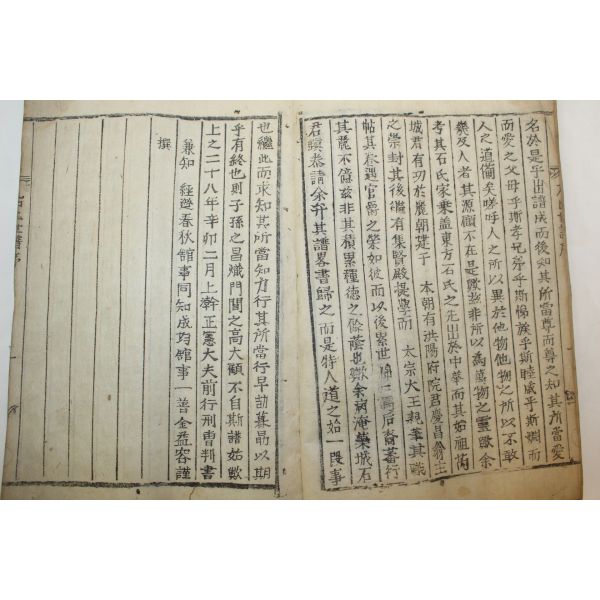 名於是乎出譜成而後知其所當尊而尊之知其所當愛
而愛之父母乎斯孝兄弟乎斯悌族乎斯睦戚乎斯婣而
人之道備矣嗟呼人之所以異於他物他物之所以不敢
與及人者其源顧不在是歟玆非所以爲萬物之靈歟余
考其石氏家乘盖東方石氏之先出於中華而其始祖
城君有功於麗朝建于 本朝有洪陽府院君慶昌翁主
之榮封其後繼有集賢殿提學而 太宗大王親筆其職
帖其眷遇官爵之榮如彼而以後累世 后裔蕃行
其麗不億玆非其積累種德之餘蔭也歟余病淹藥城石
君 恭請余弁其譜畧書歸之而是特人道之始一段事
也繼此而求知其所當知力行其所當行早刼暮勗以期
乎有終也則子孫之昌熾門閭之高大顧不自斯譜始歟
上之二十八年辛卯二月上澣正憲大夫前行刑曹判書
兼知 經筵春秋館事同知成均館事 金益容謹
撰